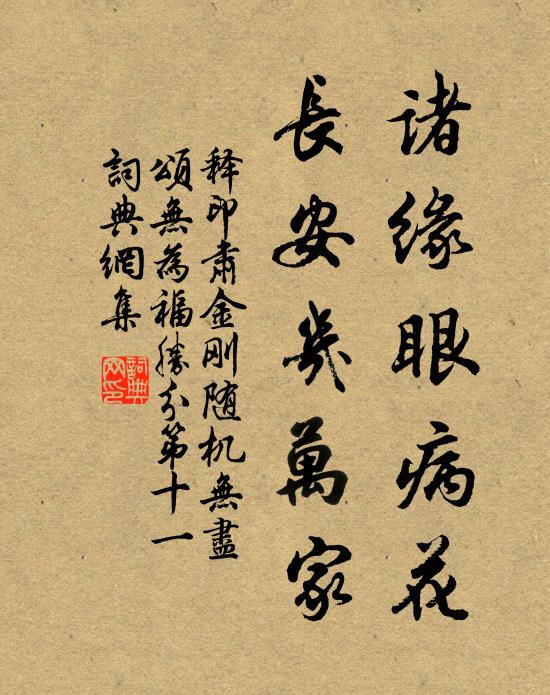 诸缘眼病花
長安幾萬家
释印肃金刚随机無盡
頌無為福勝分第十一
詞典網集
詞典
网印